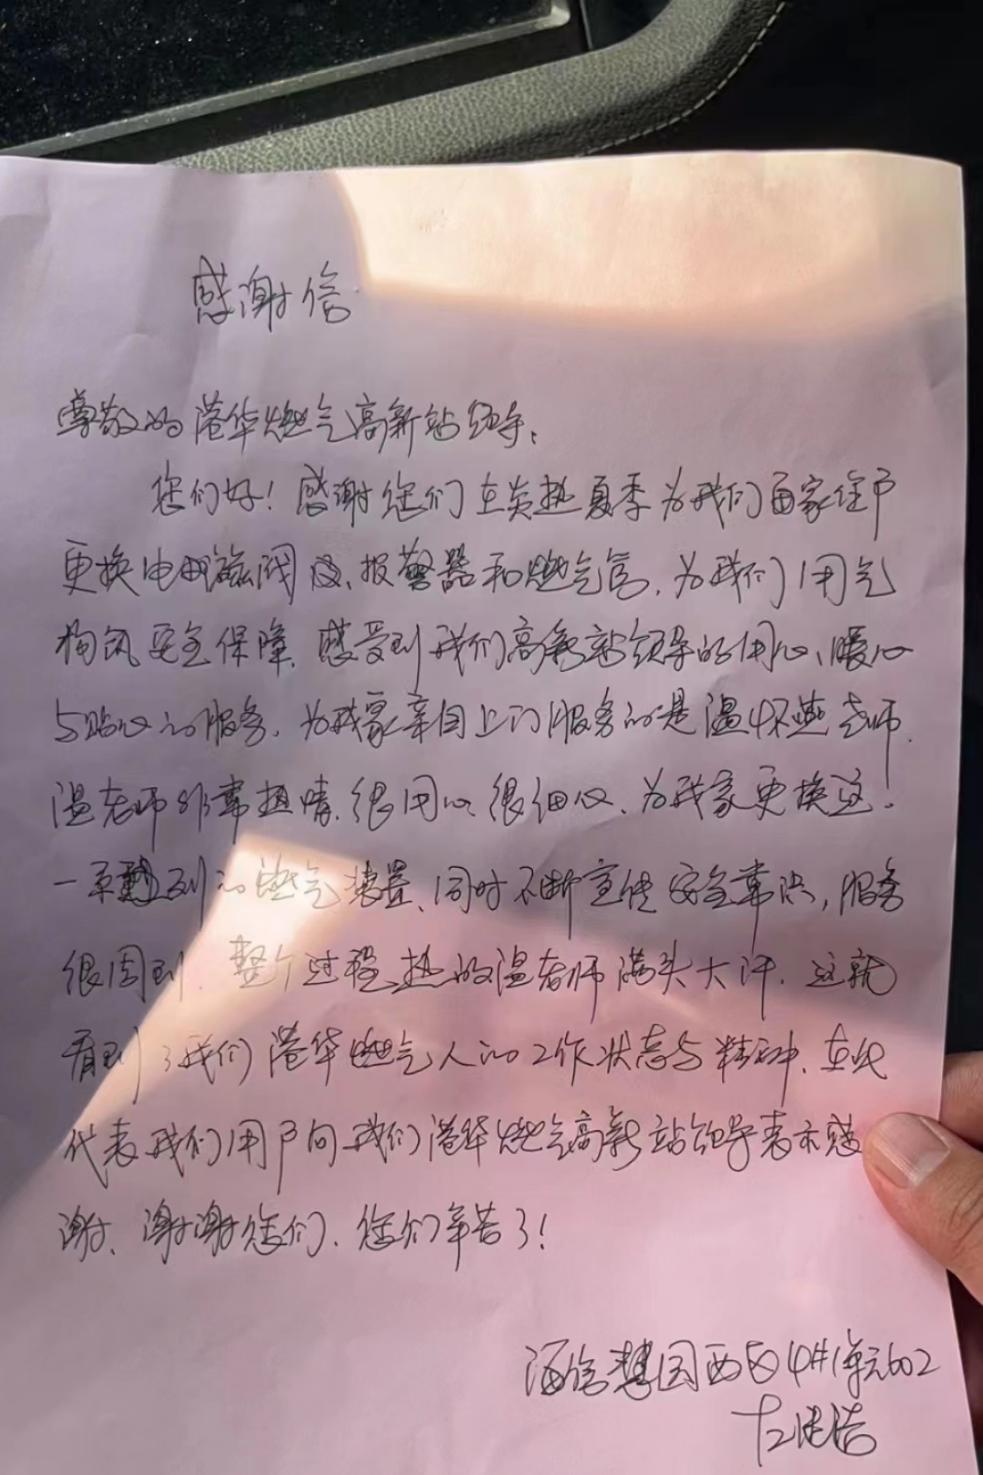 感谢信
尊敬的港华燃气高新站领导：
您们好！感谢您们在炎热夏季为我们百家住户
更换电磁阀、报警器和燃气管，为我们用气
构筑安全保障，感受到我们高新站领导的用心、暖心
与贴心的服务。为我家亲自上门服务的是温怀燕老师，
温老师非常热情、很用心、很细心、为我家更换这
一系列的燃气装置，同时不断宣传安全常识，服务
很周到，整个过程热的温老师满头大汗，这就
看到了我们港华燃气人的工作状态与精神，在此
代表我们用户向我们港华燃气高新站领导表示感
谢、谢谢您们、您们辛苦了！
海信慧园西区4#1单元602